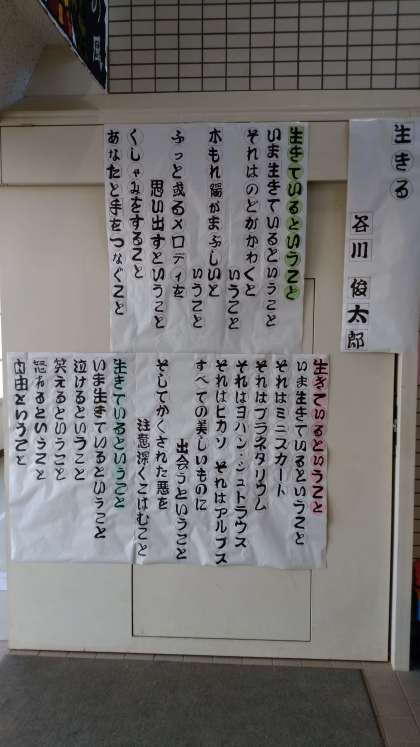 生きる
谷川 俊太郎
生きているということ
いま生きているということ
それはのどがかわくと
いうこと
木もれ陽がまぶしいと
いうこと
ふっと或るメロディを
思い出すということ
くしゃみをすること
あなたと手をつなぐこと
生きているということ
いま生きているということ
それはミニスカート
それはプラネタリウム
それはヨハン・シュトラウス
それはピカソ それはアルプス
すべての美しいものに
出会うということ
そしてかくされた悪を
注意深くこばむこと
生きているということ
いま生きているということ
泣けるということ
笑えるということ
怒れるということ
自由ということ